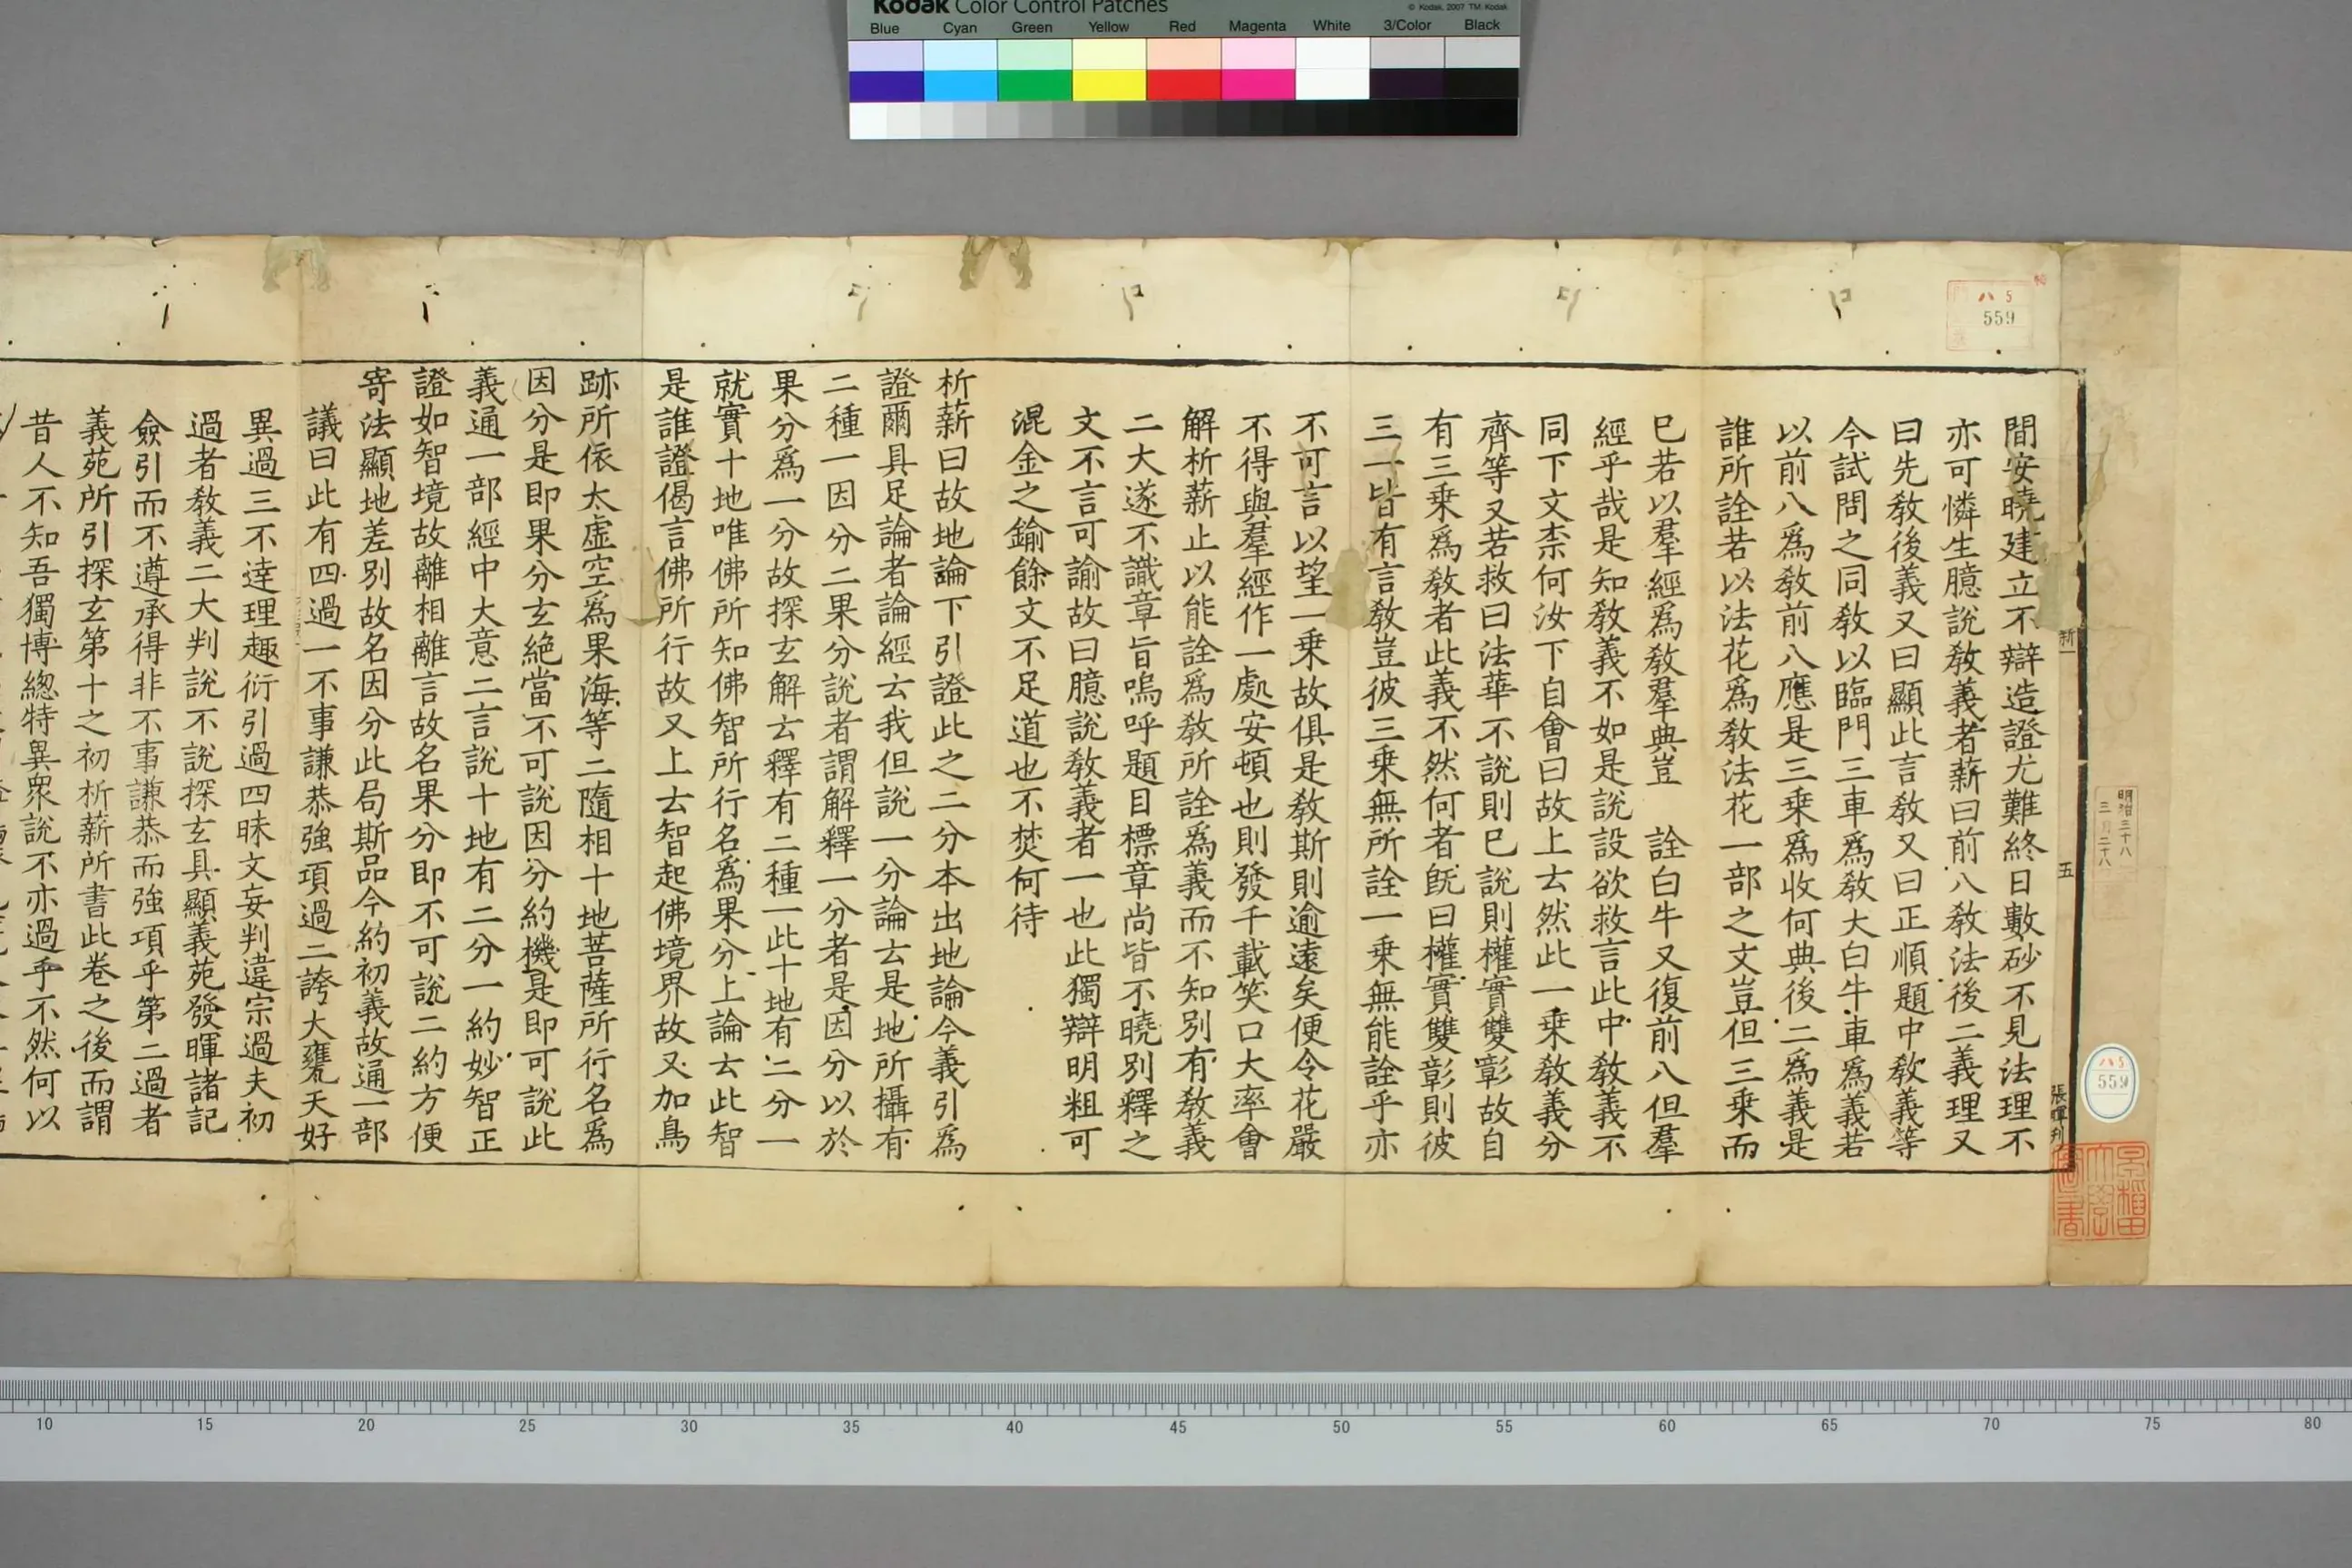 Kodak Color Control Patches
© Kodak, 2007 TM: Kodak
Blue Cyan Green Yellow Red Magenta White 3/Color Black
八 5
559
明治三十八
三 月 二十八
八 5
559
新一
五
張暉刋
間安曉建立不辯造證尤難終日數砂不見法理不
亦可憐生臆說敎義者薪曰前八敎法後二義理又
曰先敎後義又曰顯此言敎又曰正順題中敎義等
今試問之同敎以臨門三車爲敎大白牛車爲義若
以前八爲敎前八應是三乗爲收何典後二爲義是
誰所詮若以法花爲敎法花一部之文豈但三乗而
巳若以羣經爲敎羣典豈 詮白牛又復前八但羣
經乎哉是知敎義不如是說設欲救言此中敎義不
同下文柰何汝下自會曰故上去然此一乗敎義分
齊等又若救曰法華不說則巳說則權實雙彰故自
有三乗爲敎者此義不然何者旣曰權實雙彰則彼
三一皆有言敎豈彼三乗無所詮一乗無能詮乎亦
不可言以望一乗故俱是敎斯則逾遠矣便令花嚴
不得與羣經作一處安頓也則發千載笑口大率會
解析薪止以能詮爲敎所詮爲義而不知別有敎義
二大遂不識章旨嗚呼題目標章尚皆不曉別釋之
文不言可諭故曰臆說敎義者一也此獨辯明粗可
混金之鍮餘文不足道也不焚何待
析薪曰故地論下引證此之二分本出地論今義引爲
證爾具足論者論經云我但說一分論云是地所攝有
二種一因分二果分說者謂解釋一分者是因分以於
果分爲一分故探玄解云釋有二種一此十地有二分一
就實十地唯佛所知佛智所行名爲果分上論云此智
是誰證偈言佛所行故又上云智起佛境界故又加鳥
跡所依太虛空爲果海等二隨相十地菩薩所行名爲
因分是即果分玄絶當不可說因分約機是即可說此
義通一部經中大意二言說十地有二分一約妙智正
證如智境故離相離言故名果分即不可說二約方便
寄法顯地差別故名因分此局斯品今約初義故通一部
議曰此有四過一不事謙恭強項過二誇大甕天好
異過三不逹理趣衍引過四昧文妄判違宗過夫初
過者敎義二大判說不說探玄具顯義苑發暉諸記
僉引而不遵承得非不事謙恭而強項乎第二過者
義苑所引探玄第十之初析薪所書此巻之後而謂
昔人不知吾獨博總特異衆說不亦過乎不然何以